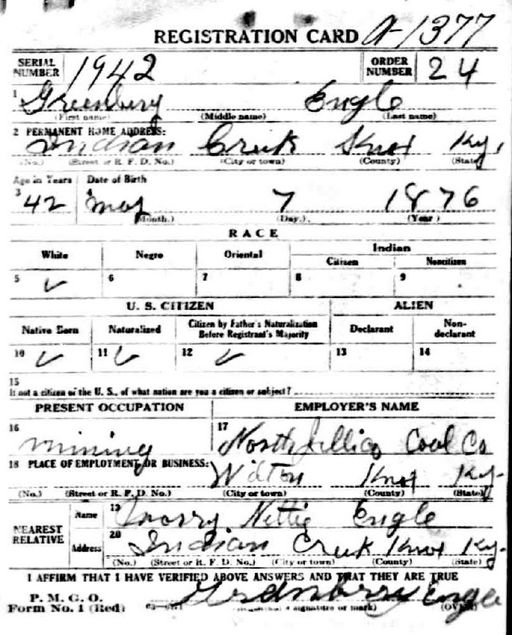 REGISTRATION CARD A-1377
SERIAL NUMBER 1942 ORDER NUMBER 24
1 Greenbery Engle
(First name) (Middle name) (Last name)
2 PERMANENT HOME ADDRESS:
Indian Creek Knox Ky.
(No.) (Street or R. F. D. No.) (City or town) (County) (State)
Age in Years Date of Birth
3 42 4 May 7 1876
(Month.) (Day.) (Year)
RACE
White Negro Oriental Indian
Citizen Noncitizen
5 ✓ 6 7 8 9
U. S. CITIZEN ALIEN
Native Born Naturalized Citizen by Father's Naturalization Before Registrant's Majority Declarant Non-declarant
10 ✓ 11 ✓ 12 ✓ 13 14
15
If not a citizen of the U. S., of what nation are you a citizen or subject?
PRESENT OCCUPATION EMPLOYER'S NAME
16 mining 17 North Jellico Coal Co
18 PLACE OF EMPLOYMENT OR BUSINESS:
Wilton Knox Ky.
(No.) (Street or R. F. D. No.) (City or town) (County) (State)
NEAREST RELATIVE
Name 19 Nettie Engle
Address 20 Indian Creek Knox Ky.
(No.) (Street or R. F. D. No.) (City or town) (County) (State)
I AFFIRM THAT I HAVE VERIFIED ABOVE ANSWERS AND THAT THEY ARE TRUE
P. M. G. O.
Form No. 1 (Red) Greanberry Engle
(Registrant's signature or mark) (OVER)